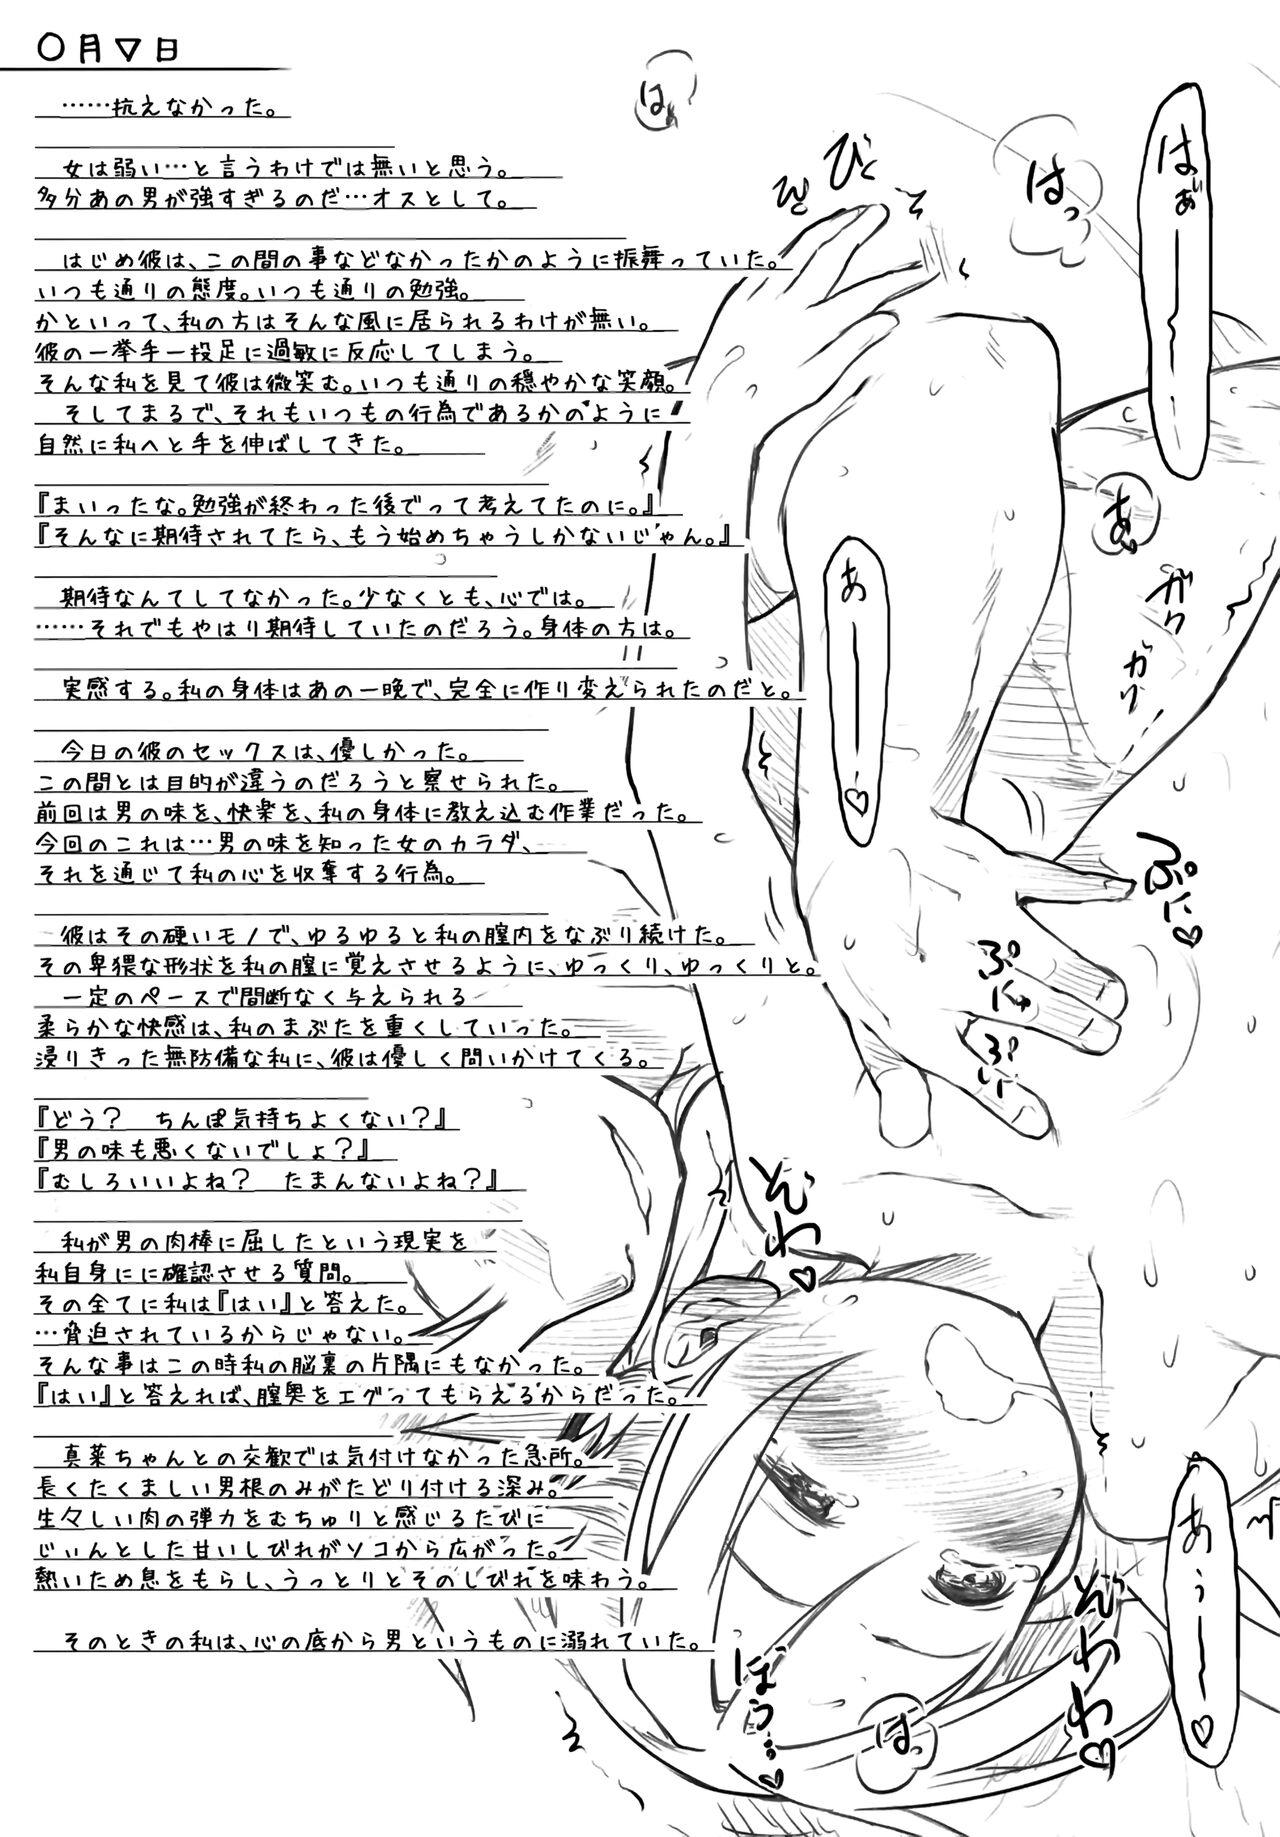 〇月▽日
……抗えなかった。
女は弱い…と言うわけでは無いと思う。
多分あの男が強すぎるのだ…オスとして。
はじめ彼は、この間の事などなかったかのように振舞っていた。
いつも通りの態度。いつも通りの勉強。
かといって、私の方はそんな風に居られるわけが無い。
彼の一挙手一投足に過敏に反応してしまう。
そんな私を見て彼は微笑む。いつも通りの穏やかな笑顔。
そしてまるで、それもいつもの行為であるかのように
自然に私へと手を伸ばしてきた。
『まいったな。勉強が終わった後でって考えてたのに。』
『そんなに期待されてたら、もう始めちゃうしかないじゃん。』
期待なんてしてなかった。少なくとも、心では。
……それでもやはり期待していたのだろう。身体の方は。
実感する。私の身体はあの一晩で、完全に作り変えられたのだと。
今日の彼のセックスは、優しかった。
この間とは目的が違うのだろうと察せられた。
前回は男の味を、快楽を、私の身体に教え込む作業だった。
今回のこれは…男の味を知った女のカラダ、
それを通じて私の心を収奪する行為。
彼はその硬いモノで、ゆるゆると私の膣内をなぶり続けた。
その卑猥な形状を私の膣に覚えさせるように、ゆっくり、ゆっくりと。
一定のペースで間断なく与えられる
柔らかな快感は、私のまぶたを重くしていった。
浸りきった無防備な私に、彼は優しく問いかけてくる。
『どう？　ちんぽ気持ちよくない？』
『男の味も悪くないでしょ？』
『むしろいいよね？　たまんないよね？』
私が男の肉棒に屈したという現実を
私自身にに確認させる質問。
その全てに私は『はい』と答えた。
…脅迫されているからじゃない。
そんな事はこの時私の脳裏の片隅にもなかった。
『はい』と答えれば、膣奥をエグってもらえるからだった。
真菜ちゃんとの交歓では気付けなかった急所。
長くたくましい男根のみがたどり付ける深み。
生々しい肉の弾力をむちゅりと感じるたびに
じぃんとした甘いしびれがソコから広がった。
熱いため息をもらし、うっとりとそのしびれを味わう。
そのときの私は、心の底から男というものに溺れていた。
はぁーーー
はっ
は
びくん
あ
ガクガク
あーーー♡
ぷに♡
ぷにゅ
ぷい
ぞわ♡
あぅーー♡
ぞわわ♡
ぼう…♡
はっ